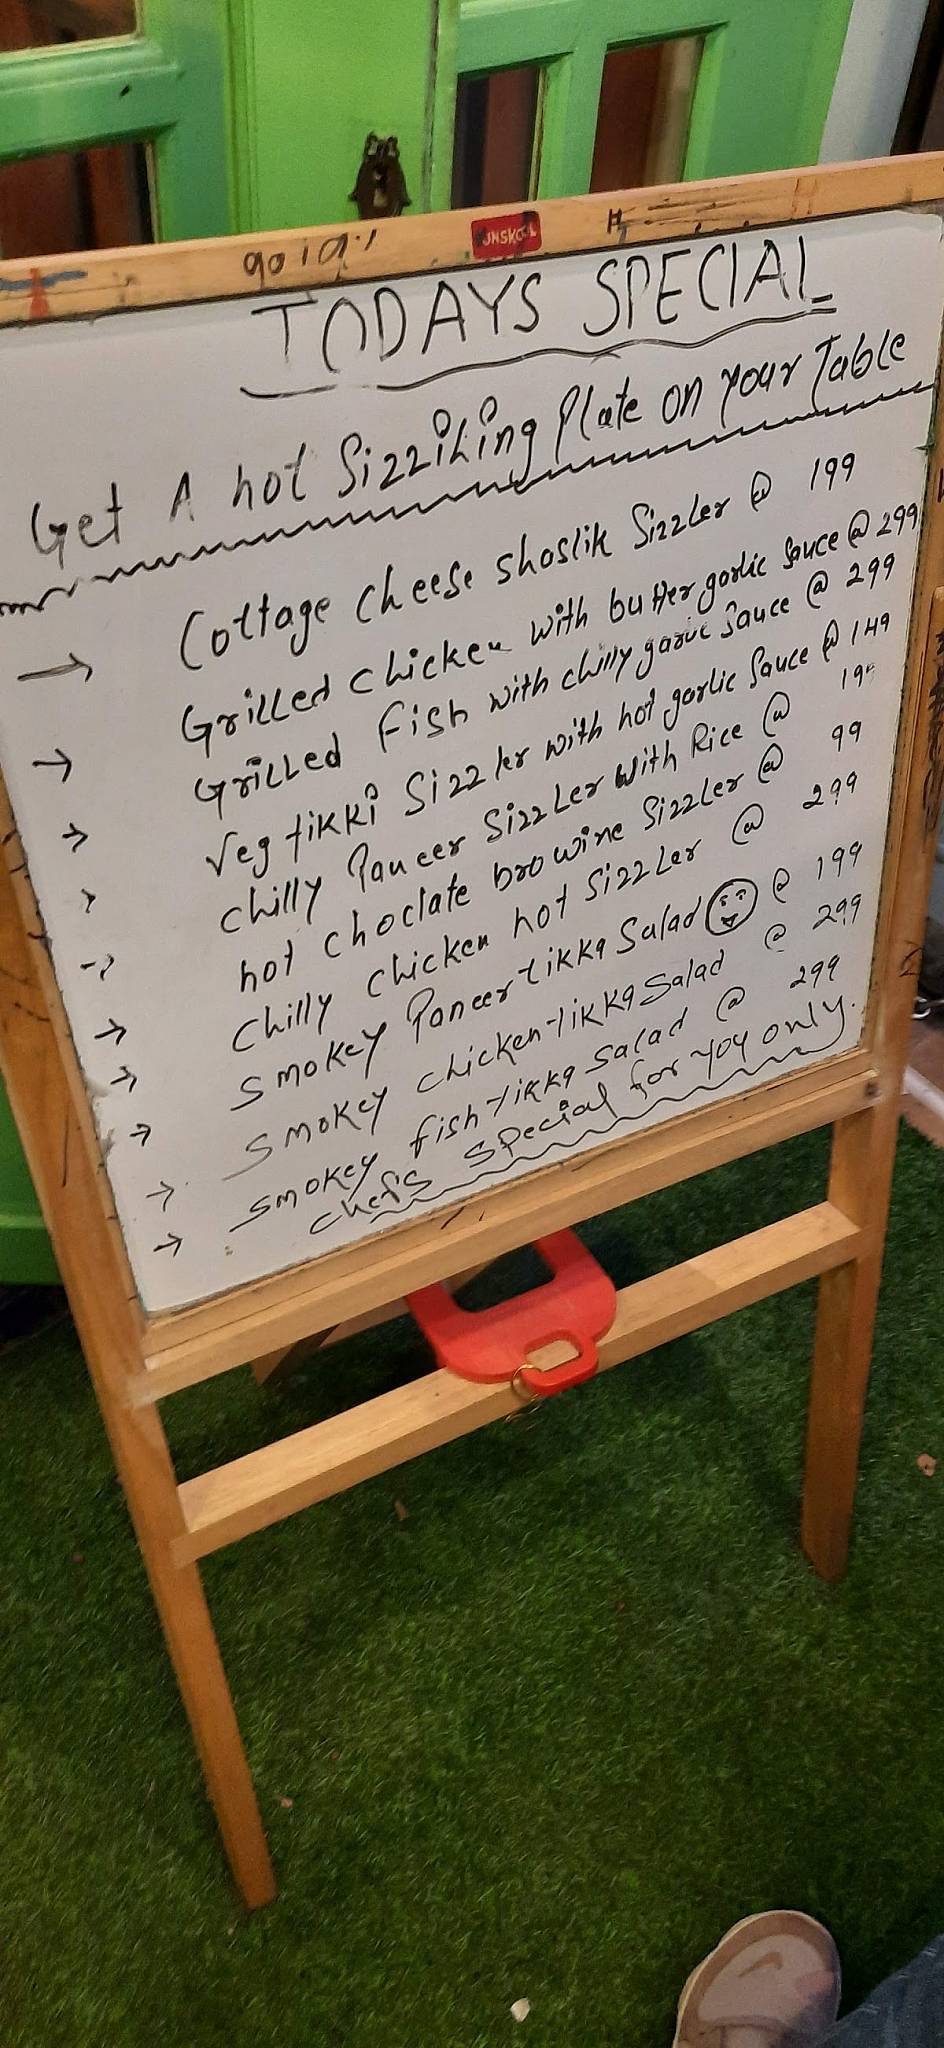 TODAYS SPECIAL
Get A hot Sizziling Plate on your Table
→ Cottage cheese shoslik Sizzler @ 199
→ Grilled chicken with butter garlic sauce @ 299
→ Grilled Fish with chilly garlic sauce @ 299
→ Veg tikki Sizzler with hot garlic sauce @ 149
→ chilly Paneer Sizzler with Rice @
→ hot choclate browine Sizzler @ 99
→ Chilly chicken hot Sizzler @ 299
→ Smokey Paneer tikka Salad @ 199
→ Smokey chicken tikka Salad @ 299
→ Smokey fish tikka salad @ 299
chefs special for you only.